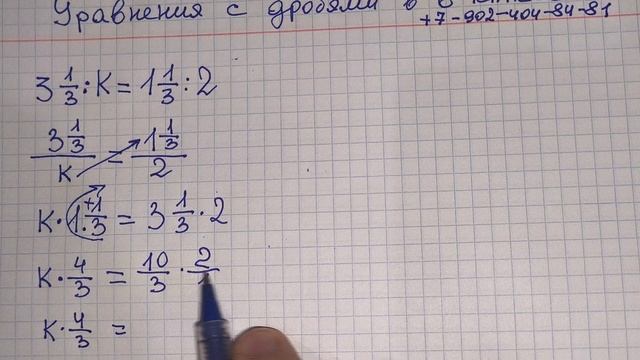 Уравнения с дробями в 6
+7-902-404-84-81
3 1/3 : К = 1 1/3 : 2
3 1/3 / К = 1 1/3 / 2
К · 1 1/3 = 3 1/3 · 2
К · 4/3 = 10/3 · 2/
К · 4/3 =